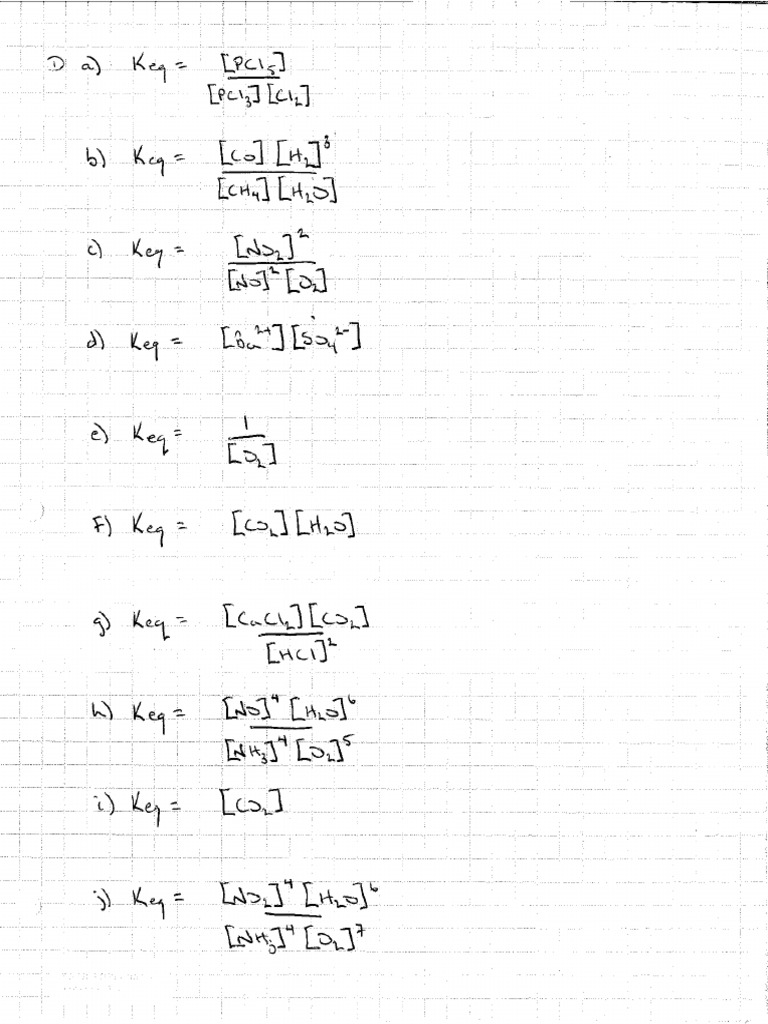 1) a) Keq = [PCl5] / [PCl3][Cl2]
b) Keq = [CO][H2]^3 / [CH4][H2O]
c) Keq = [NO2]^2 / [NO]^2[O2]
d) Keq = [Ba^2+][SO4^2-]
e) Keq = 1 / [O2]
F) Keq = [CO2][H2O]
g) Keq = [CaCl2][CO2] / [HCl]^2
h) Keq = [NO]^4[H2O]^6 / [NH3]^4[O2]^5
i) Keq = [CO2]
j) Keq = [NO2]^4[H2O]^6 / [NH3]^4[O2]^7